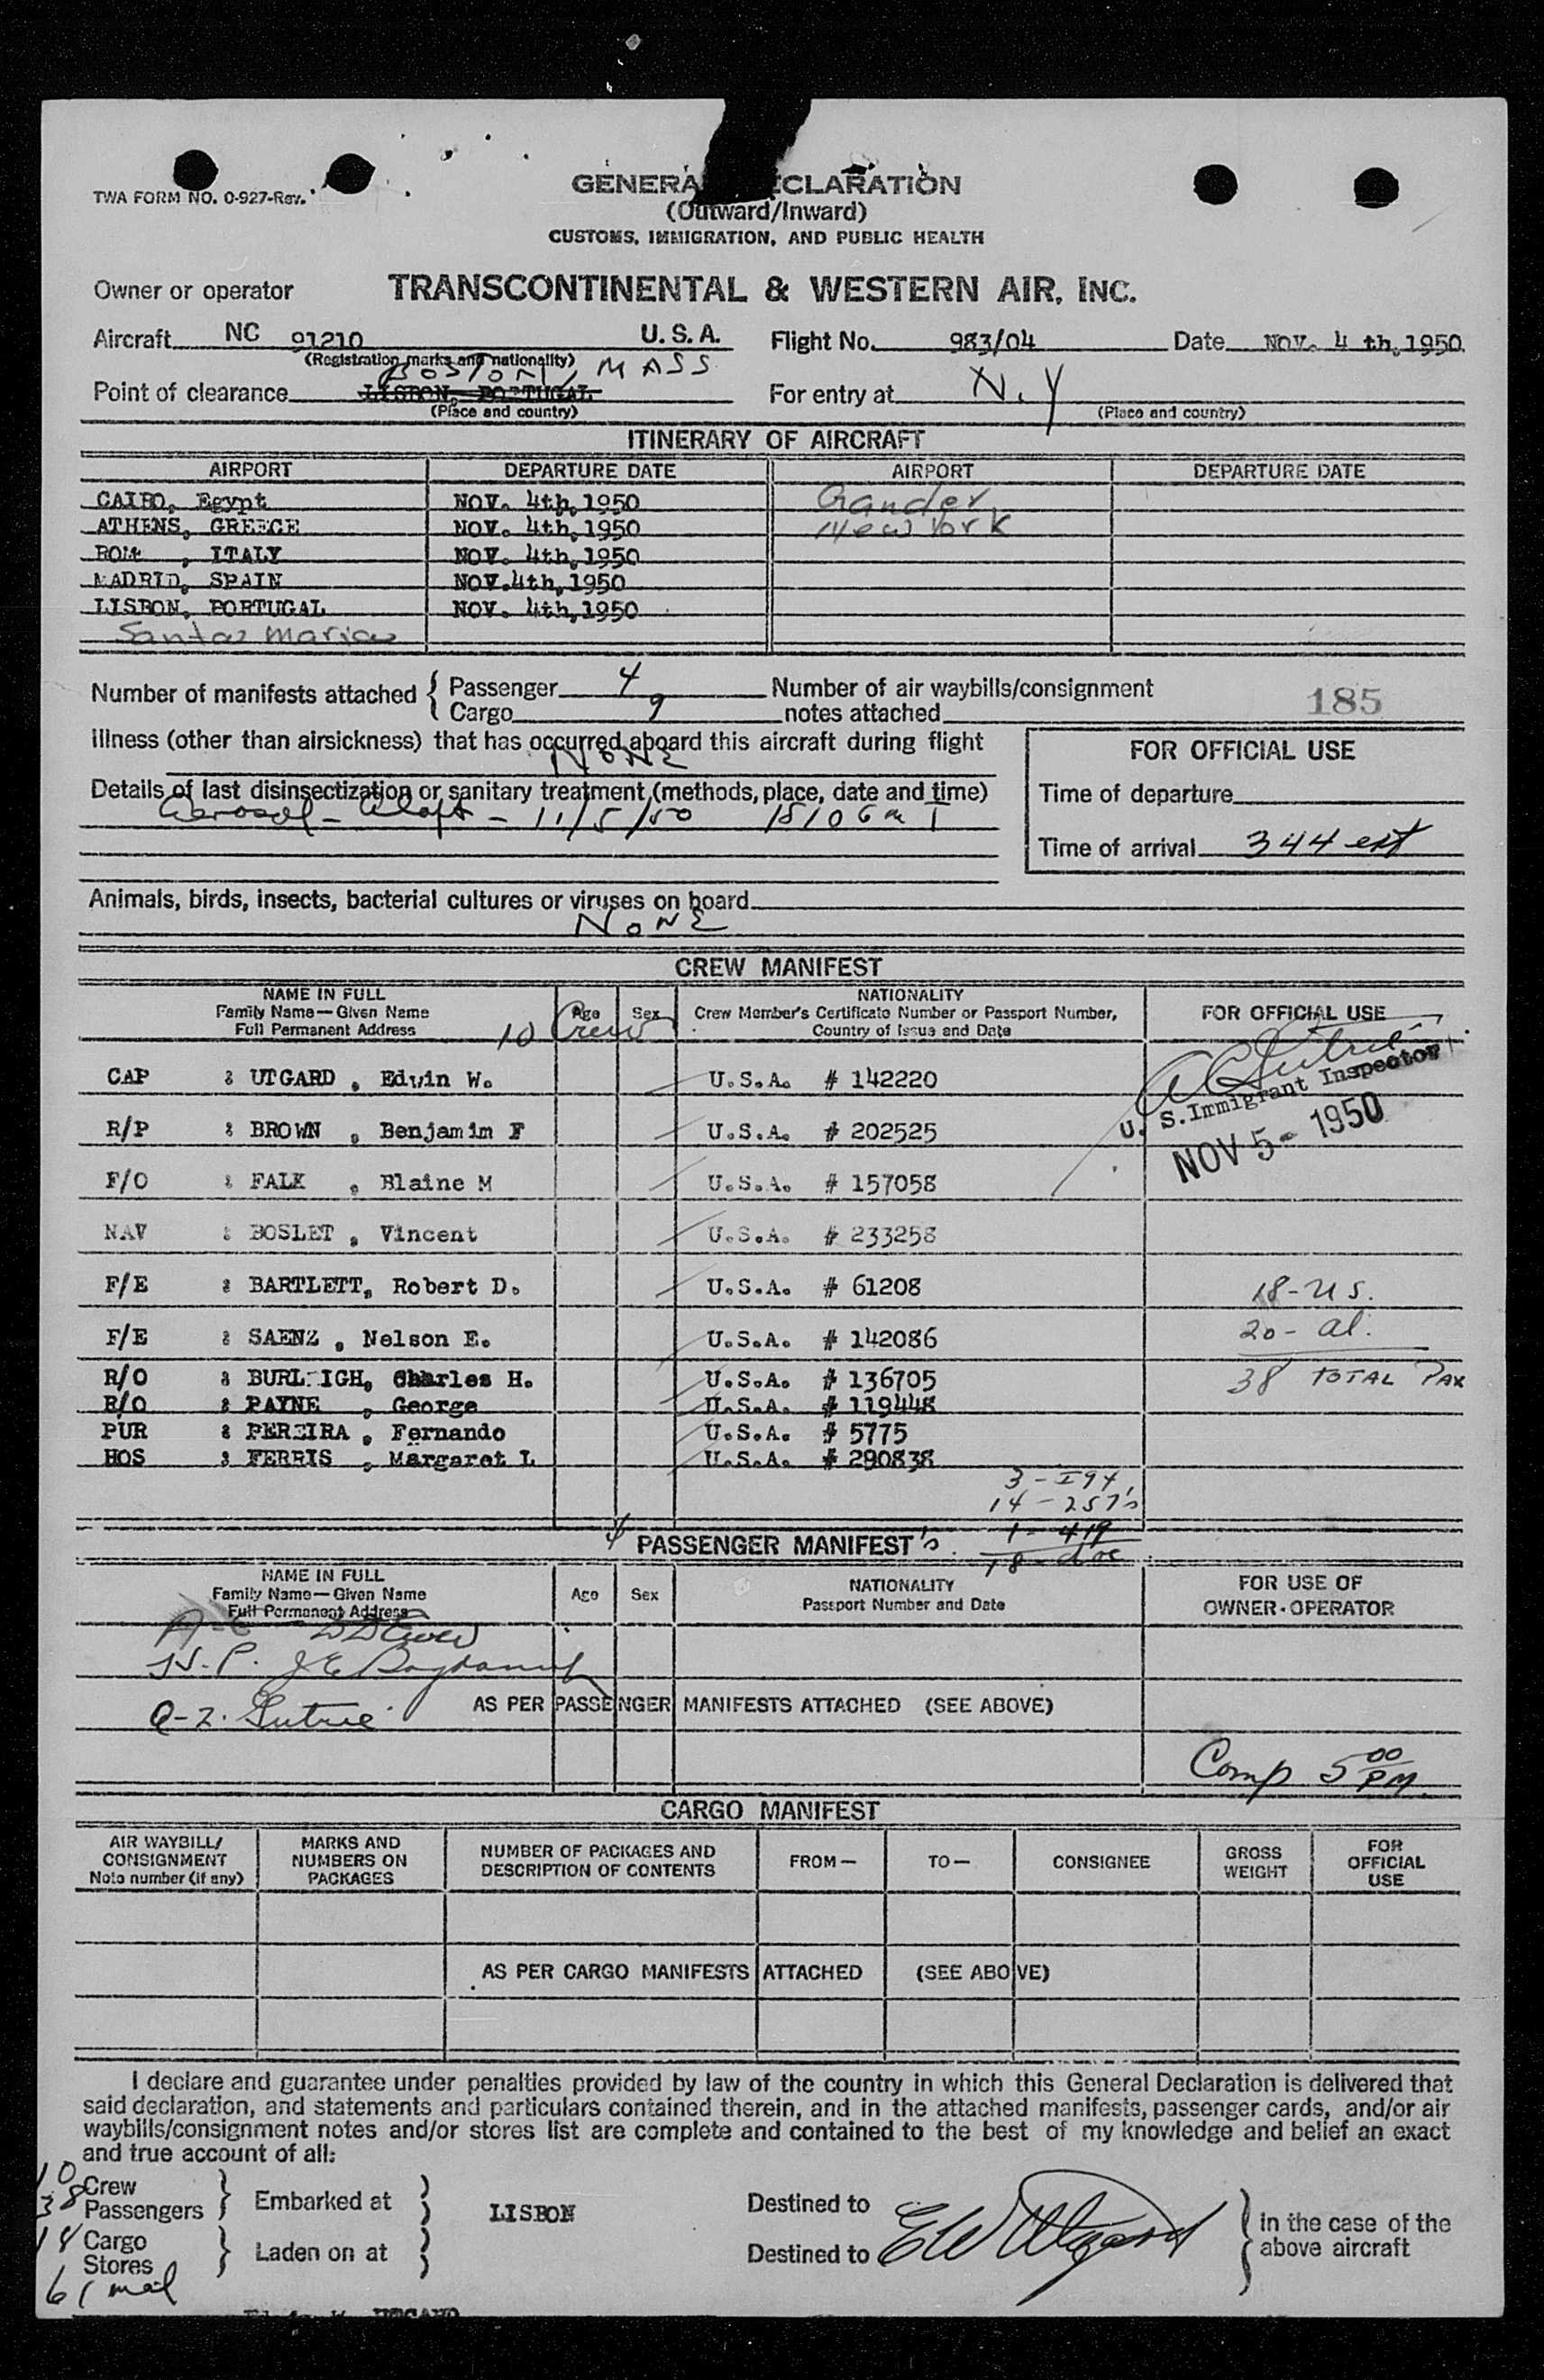 TWA FORM NO. O-927-Rev.
GENERA ECLARATION
(Outward/Inward)
CUSTOMS, IMMIGRATION, AND PUBLIC HEALTH
Owner or operator TRANSCONTINENTAL & WESTERN AIR, INC.
Aircraft NC 91210 U.S.A. Flight No. 983/04 Date NOV. 4 th, 1950
(Registration marks and nationality)
BOSTON, MASS
Point of clearance LISBON, PORTUGAL For entry at N.Y
(Place and country) (Place and country)
ITINERARY OF AIRCRAFT
AIRPORT DEPARTURE DATE AIRPORT DEPARTURE DATE
CAIRO, Egypt NOV. 4th, 1950 Gander
ATHENS, GREECE NOV. 4th, 1950 New York
ROM , ITALY NOV. 4th, 1950
MADRID, SPAIN NOV.4th, 1950
LISBON, PORTUGAL NOV. 4th, 1950
Santa Maria
Number of manifests attached { Passenger 4 Number of air waybills/consignment
Cargo 9 notes attached 185
Illness (other than airsickness) that has occurred aboard this aircraft during flight
NONE
FOR OFFICIAL USE
Details of last disinsectization or sanitary treatment (methods, place, date and time)
Aerosol - Aloft - 11/5/50 1810 GMT
Time of departure
Time of arrival 344 est
Animals, birds, insects, bacterial cultures or viruses on board
NONE
CREW MANIFEST
NAME IN FULL
Family Name—Given Name
Full Permanent Address
Age Sex
NATIONALITY
Crew Member's Certificate Number or Passport Number,
Country of Issue and Date
FOR OFFICIAL USE
10 Crew
CAP : UTGARD , Edwin W. U.S.A. # 142220
U. S. Immigrant Inspector
R/P : BROWN , Benjamim F U.S.A. # 202525
NOV 5- 1950
F/O : FALK , Blaine M U.S.A. # 157058
NAV : BOSLET , Vincent U.S.A. # 233258
F/E : BARTLETT, Robert D. U.S.A. # 61208 18-US.
F/E : SAENZ , Nelson E. U.S.A. # 142086 20- al.
R/O : BURL IGH, Charles H. U.S.A. # 136705 38 TOTAL PAX
R/O : PAYNE , George U.S.A. # 119448
PUR : PEREIRA , Fernando U.S.A. # 5775
HOS : FERRIS , Margaret L U.S.A. # 290838
3 - I94,
14 - 257's
1 - 419
18 - doc
4 PASSENGER MANIFEST's
NAME IN FULL
Family Name—Given Name
Full Permanent Address
Age Sex
NATIONALITY
Passport Number and Date
FOR USE OF
OWNER-OPERATOR
H-P. J E
Q-Z.
AS PER PASSENGER MANIFESTS ATTACHED (SEE ABOVE)
Comp 5 00 PM
CARGO MANIFEST
AIR WAYBILL/
CONSIGNMENT
Note number (if any)
MARKS AND
NUMBERS ON
PACKAGES
NUMBER OF PACKAGES AND
DESCRIPTION OF CONTENTS
FROM— TO— CONSIGNEE
GROSS
WEIGHT
FOR
OFFICIAL
USE
AS PER CARGO MANIFESTS ATTACHED (SEE ABOVE)
I declare and guarantee under penalties provided by law of the country in which this General Declaration is delivered that
said declaration, and statements and particulars contained therein, and in the attached manifests, passenger cards, and/or air
waybills/consignment notes and/or stores list are complete and contained to the best of my knowledge and belief an exact
and true account of all:
10 Crew
38 Passengers } Embarked at } LISBON Destined to
18 Cargo
Stores } Laden on at } Destined to
EW Utgard
} In the case of the
above aircraft
6 mail
UTGARD